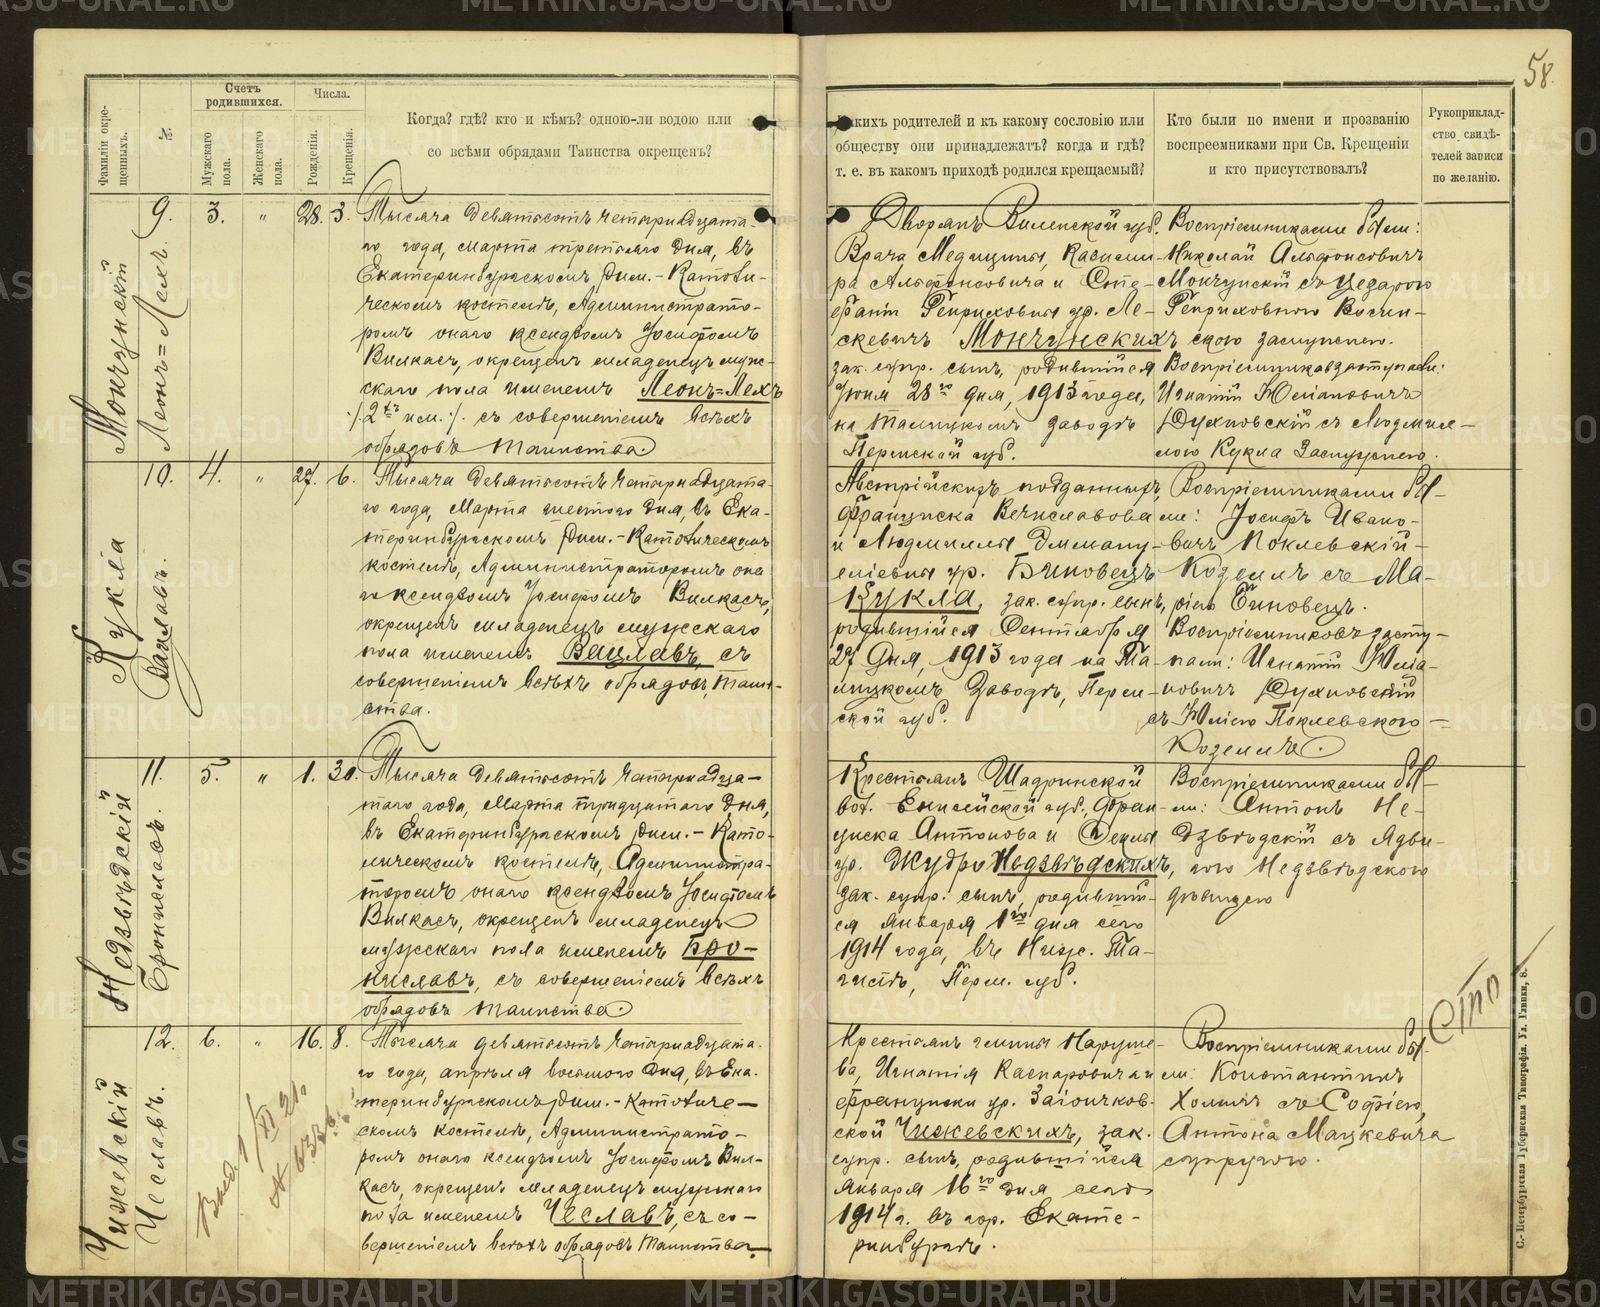 58.
Фамиліи окре-
щенныхъ.
№.
Счетъ
родившихся.
Мужскаго
пола.
Женскаго
пола.
Числа.
Рожденія.
Крещенія.
Когда? гдѣ? кто и кѣмъ? одною-ли водою или
со всѣми обрядами Таинства окрещенъ?
какихъ родителей и къ какому сословію или
обществу они принадлежатъ? когда и гдѣ?
т. е. въ какомъ приходѣ родился крещаемый?
Кто были по имени и прозванію
воспреемниками при Св. Крещеніи
и кто присутствовалъ?
Рукоприклад-
ство свидѣ-
телей записи
по желанію.
Мончунскій
Леонъ=Лехъ.
9.
3.
"
28.
3.
Тысяча девятьсотъ четырнадцата-
го года, марта третьяго дня, въ
Екатеринбургскомъ Рим.-Католи-
ческомъ костелѣ, Администрато-
ромъ онаго ксендзомъ Іосифомъ
Вилкасъ, окрещенъ младенецъ муж-
скаго пола именемъ Леонъ=Лехъ
/.2хъ им./. съ совершеніемъ всѣхъ
обрядовъ таинства.
Дворянъ Виленской губ.
Врача Медицины, Казими-
ра Альфонсовича и Сте-
фаніи Генриховны ур. Ле-
скевичъ Мончунскихъ
зак. супр. сынъ, родившійся
Іюня 28го дня, 1913 года,
на Талицкомъ заводѣ
Пермской губ.
Воспріемниками были:
Николай Альфонсовичъ
Мончунскій съ Цезарою
Генриховною Восин-
скою заслужено.
Воспріемниковъ заступали:
Игнатій Юліановичъ
Духновскій съ Людмил-
лою Кукла Заслужено.
Кукла
Вацлавъ.
10.
4.
"
27.
6.
Тысяча девятьсотъ четырнадцата-
го года, Марта шестого дня, въ Ека-
теринбургскомъ Рим.-Католическомъ
костелѣ, Администраторомъ она
го ксендзомъ Іосифомъ Вилкасъ,
окрещенъ младенецъ мужескаго
пола именемъ Вацлавъ, съ
совершеніемъ всѣхъ обрядовъ, таин-
ства.
Австрійскихъ подданныхъ,
Франциска Вечиславова
и Людмиллы Эмману-
еліевны ур. Биновецъ
Кукла, зак. супр. сынъ,
родившійся Сентября
27 дня, 1913 года на Та-
лицкомъ Заводѣ, Перм-
ской губ.
Воспріемниками бы-
ли: Іосифъ Ивано-
вичъ Поклевскій-
Козеллъ съ Ма-
ріею Биновецъ.
Воспріемниковъ засту-
пали: Игнатій Юліа-
новичъ Духновскій
съ Юліею Поклевскою-
Козеллъ.
Недзвѣдскій
Брониславъ.
11.
5.
"
1.
30.
Тысяча девятьсотъ четырнадца-
таго года, Марта тридцатаго дня,
въ Екатеринбургскомъ Рим.-Като-
лическомъ костелѣ, Администра-
торомъ онаго ксендзомъ Іосифомъ
Вилкасъ, окрещенъ младенецъ
мужескаго пола именемъ Бро-
ниславъ, съ совершеніемъ всѣхъ
обрядовъ таинства.
Крестьянъ Шадринской
вол. Енисейской губ., Фран-
циска Антонова и
ур. Жудро Недзвѣдскихъ,
зак. супр. сынъ, родивший-
ся Января 1го дня сего
1914 года, въ Ниж. Та-
гилѣ, Перм. губ.
Воспріемниками бы-
ли: Антонъ Не-
дзвѣдскій съ Ядви-
гою Недзвѣдскою
дѣвицею
Чижевскій
Чеславъ.
12.
6.
"
16.
8.
Тысяча девятьсотъ четырнадцата-
го года, апрѣля восьмого дня, въ Ека-
теринбургскомъ Рим.-Католиче-
скомъ костелѣ, Администрато-
ромъ онаго ксендзомъ Іосифомъ Вил-
касъ, окрещенъ младенецъ мужскаго
пола именемъ Чеславъ, съ со-
вершеніемъ всѣхъ обрядовъ таинства.
Крестьянъ гмины Наруше-
ва, Игнатія Каспаровича и
Франциски ур. Загончков-
ской Чижевскихъ, зак.
супр. сынъ, родившійся
Января 16го дня сего
1914 г. въ гор. Екате-
ринбургѣ.
Воспріемниками бы-
ли: Константинъ
Холмъ съ Софіею,
Антона Мацкевича
супругою.
Выд. 1/XI 21.
№ 6336
С.-Петербургская Губернская Типографія. Ул. Глинки, 8.
METRIKI.GASO-URAL.RU